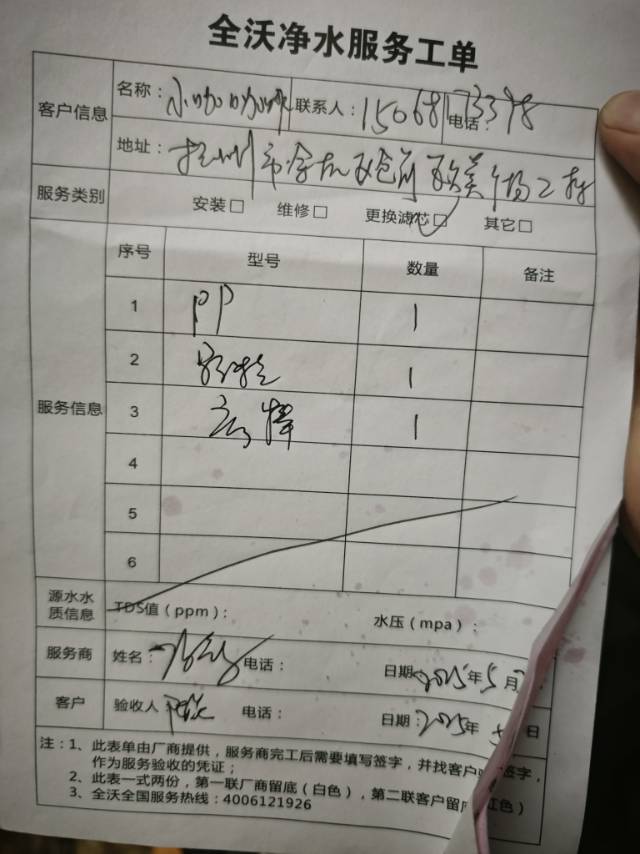 全沃净水服务工单
客户信息
名称：小咖咖啡 联系人：15068173398 电话：
地址：杭州市余杭区仓前欧美
服务类别 安装□ 维修□ 更换滤芯□ 其它□
服务信息
序号 型号 数量 备注
1 PP 1
2 1
3 1
4
5
6
源水水质信息 TDS值（ppm）： 水压（mpa）：
服务商 姓名： 电话： 日期：2025年5月
客户 验收人： 电话： 日期：2025年5 日
注：1、此表单由厂商提供，服务商完工后需要填写签字，并找客户 签字，
作为服务验收的凭证；
2、此表一式两份，第一联厂商留底（白色），第二联客户留 色）
3、全沃全国服务热线：4006121926